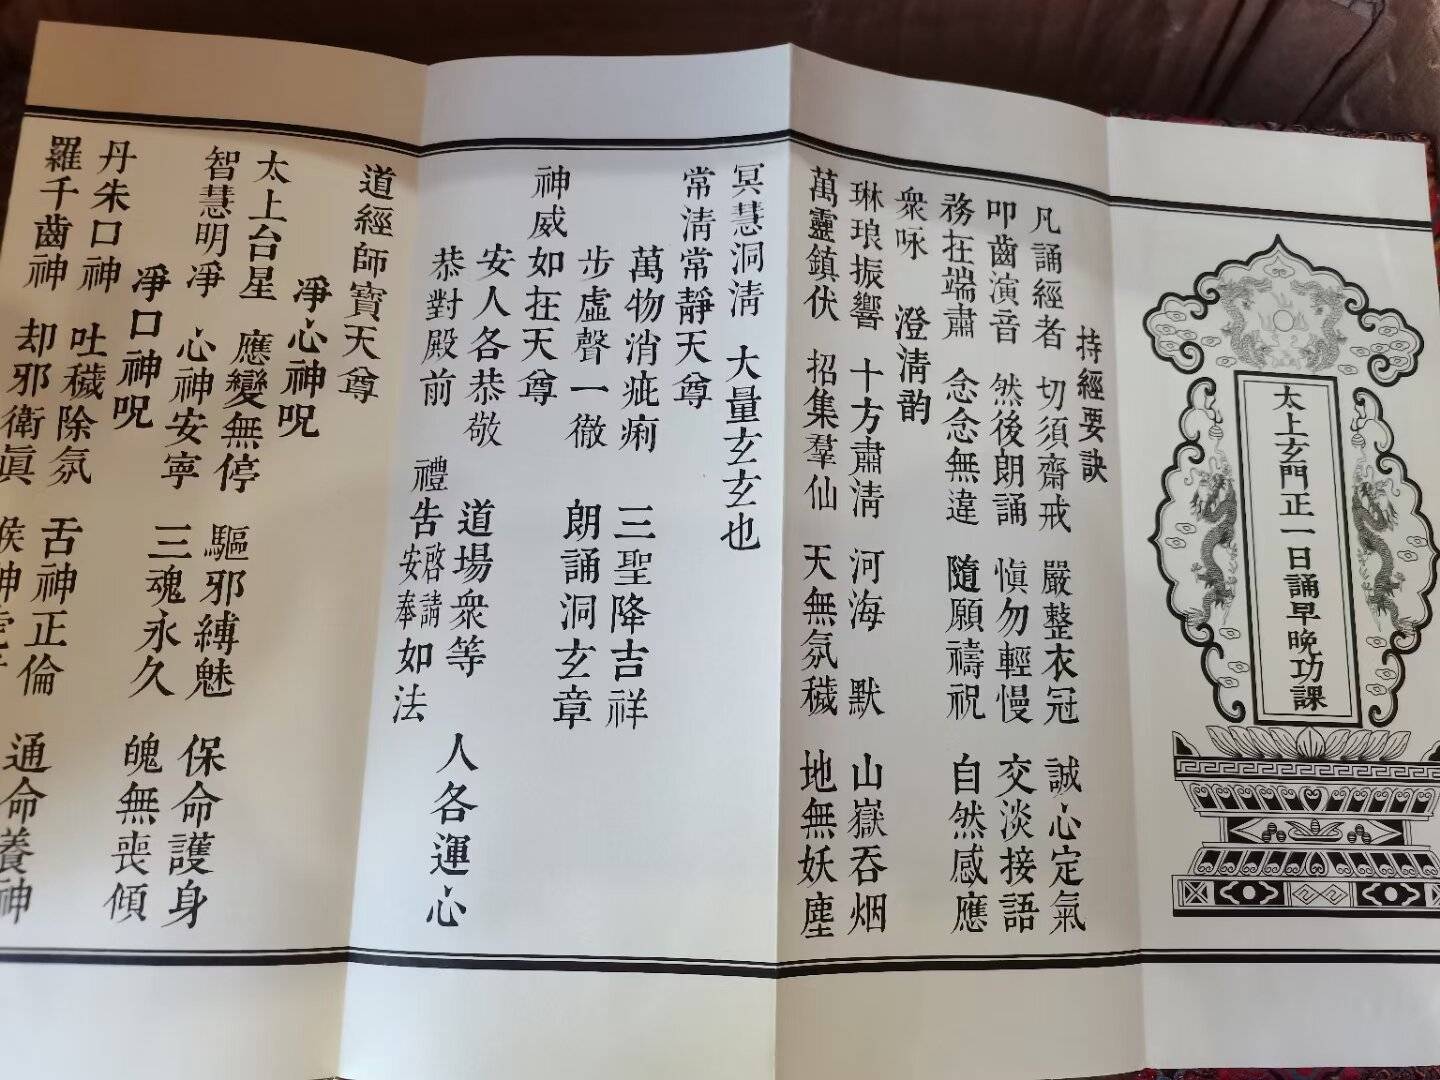 太上玄門正一日誦早晚功課
持經要訣
凡誦經者 切須齋戒 嚴整衣冠 誠心定氣
叩齒演音 然後朗誦 慎勿輕慢 交淡接語
務在端肅 念念無違 隨願禱祝 自然感應
衆咏 澄清韵
琳琅振響 十方肅清 河海 默 山嶽吞烟
萬靈鎮伏 招集羣仙 天無氛穢 地無妖塵
冥慧洞清 大量玄玄也
常清常靜天尊
萬物消疵痢 三聖降吉祥
步虛聲一徹 朗誦洞玄章
神威如在天尊
安人各恭敬 道場衆等 人各運心
恭對殿前 禮告啓請安奉如法
道經師寶天尊
淨心神呪
太上台星 應變無停 驅邪縛魅 保命護身
智慧明淨 心神安寧 三魂永久 魄無喪傾
淨口神呪
丹朱口神 吐穢除氛 舌神正倫 通命養神
羅千齒神 却邪衛眞